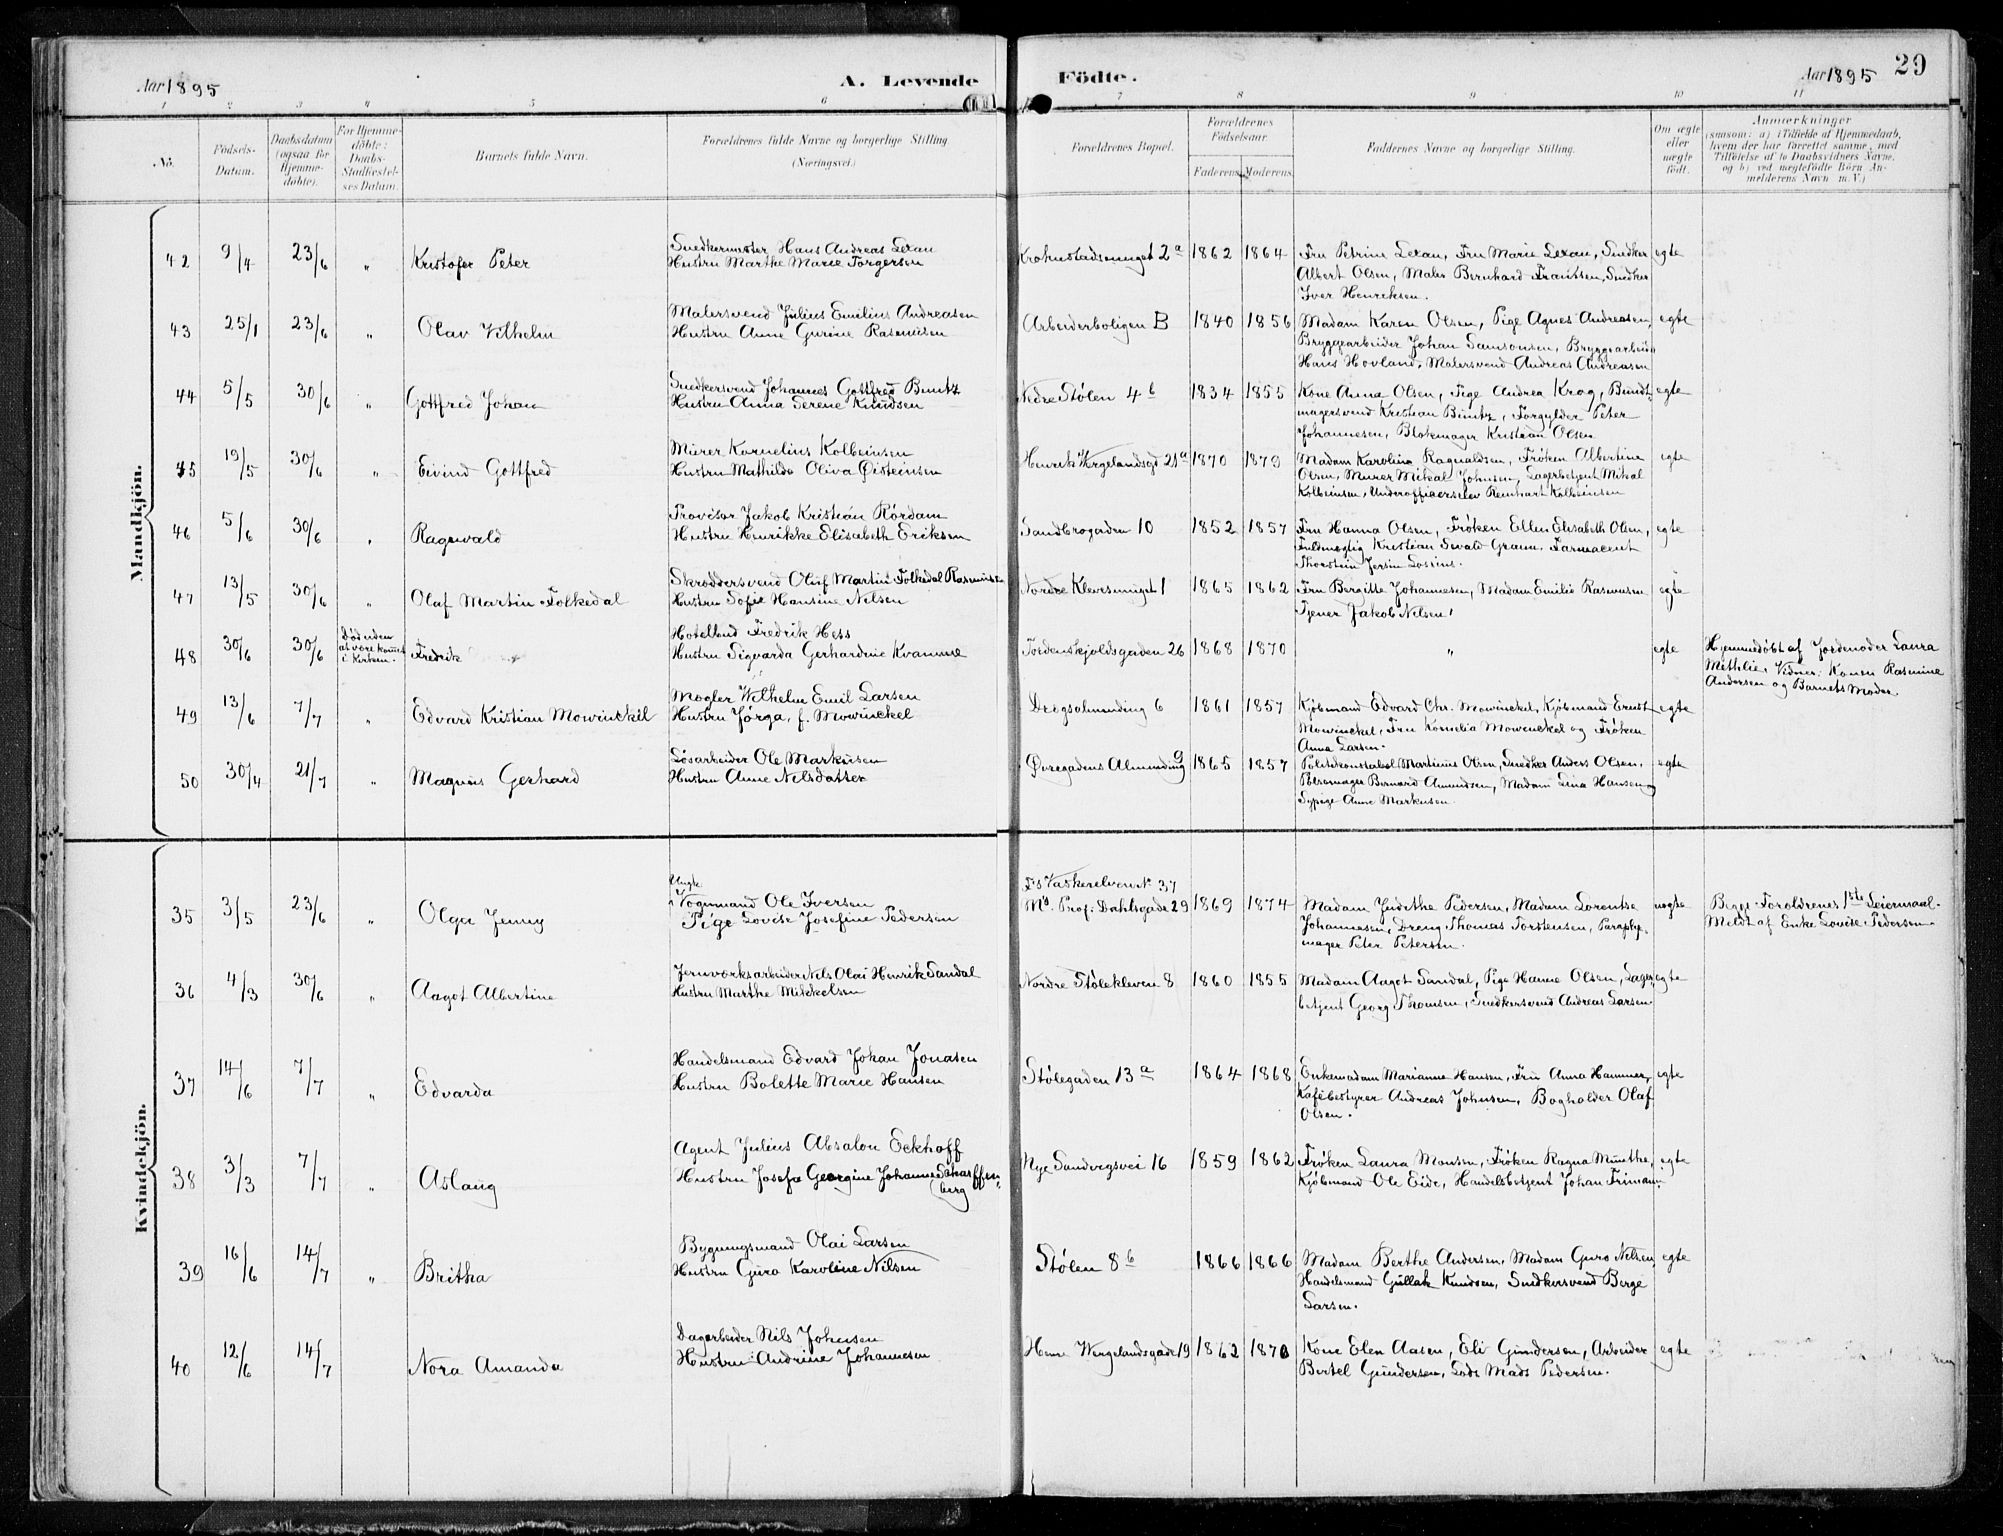 Aar 1895
A. Levende
Födte.
Aar 1895
29
1 2 3 4 5 6 7 8 9 10 11
No.
Födsels-
Datum.
Daabsdatum
(ogsaa for
Hjemme-
döbte).
For Hjemme-
döbte:
Daabs-
Stadfæstel-
ses Datum.
Barnets fulde Navn.
Forældrenes fulde Navne og borgerlige Stilling
(Næringsvei.)
Forældrenes Bopæl.
Forældrenes
Födselsaar.
Faderens. Moderens.
Faddernes Navne og borgerlige Stilling.
Om ægte
eller
uægte
födt.
Anmærkninger
(saasom: a) i Tilfælde af Hjemmedaab,
hvem der har forrettet samme, med
Tilföielse af to Daabsvidners Navne,
og b) ved uægtefödte Börn An-
melderens Navn m. V.)
Mandkjön.
42 9/4 23/6 " Kristofer Peter
Snedkermester Hans Andreas Lexau
Hustru Marthe Marie Torgersen
Krohnstadsmuget 2a 1862 1864
Fru Petrine Lexau, Fru Marie Lexau, Snedker
Albert Olsen, Maler Bernhard Frantsen, Snedker
Iver Henriksen.
egte
43 25/1 23/6 " Olav Vilhelm
Malersvend Julius Emilius Andreasen
Hustru Anne Gurine Rasmusen
Arbeiderboligen B 1840 1856
Madam Karen Olsen, Pige Agnes Andreasen,
Bryggearbeider Johan Samsonsen, Bryggearbeider
Hans Hovland, Malersvend Andreas Andreasen
egte
44 5/5 30/6 " Gottfred Johan
Snedkersvend Johannes Gottfred Buntz
Hustru Anna Serene Knudsen
Nedre Stølen 4b 1834 1855
Kone Anna Olsen, Pige Andrea Krog, Bundt-
magersvend Kristian Buntz, Forgylder Peter
Johannesen, Blokmager Kristian Olsen
egte
45 19/5 30/6 " Eivind Gottfred
Murer Kornelius Kolbeinsen
Hustru Mathilde Oliva Øisteinsen
Henrik Wergelandsgd 21a 1870 1879
Madam Karoline Ragnaldsen, Frøken Albertine
Olsen, Murer Mikal Johnsen, Lagerbetjent Mikal
Kolbeinsen, Underofficerselev Reinhart Kolbeinsen
egte
46 5/6 30/6 " Ragnvald
Provisor Jakob Kristian Rørdam
Hustru Henrikke Elisabeth Eriksen
Sandbrogaden 10 1852 1857
Fru Hanna Olsen, Frøken Ellen Elisabeth Olsen,
Fuldmegtig Kristian Sevald Grann, Farmaceut
Thorstein Jersin Lossius.
egte
47 13/5 30/6 " Olaf Martin Folkedal
Skreddersvend Oluf Martin Folkedal Rasmusen
Hustru Sofie Hansine Nilsen
Nordre Kleversmuget 1 1865 1862
Fru Bergitte Johannesen, Madam Emilie Rasmusen
Tjener Jakob Nilsen
egte
48 30/6 30/6
Død uden
at være komet
i Kirken.
Fredrik
Hotelbud Fredrik Hess
Hustru Sigvarda Gerhardine Kvamme
Tordenskjoldsgaden 26 1868 1870 " egte
Hjemmedøbt af Jordemoder Laura
Methlie, Vidner: Konen Rasmine
Andersen og Barnets Moder
49 13/6 7/7 " Edvard Kristian Mowinckel
Megler Wilhelm Emil Larsen
Hustru Jørga, f. Mowinckel
Dregsalmending 6 1861 1857
Kjøbmand Edvard Chr. Mowinckel, Kjøbmand Ernst
Mowinckel, Fru Kornelia Mowinckel og Frøken
Anna Larsen.
egte
50 30/4 21/7 " Magnus Gerhard
Løsarbeider Ole Markusen
Hustru Anne Nilsdatter
Øvregadens Almending 9 1865 1857
Politikonstabel Martinus Olsen, Snedker Anders Olsen,
Pølsemager Bernard Amundsen, Madam Lina Hansen og
Sypige Anne Markusen.
egte
Kvindekjön.
35 3/5 23/6 " Olga Jenny
Ungk.
Vognmand Ole Iversen
Pige Lovise Josefine Pedersen
Fs Vaskerelven No 37
Ms. Prof: Dahlsgade 29 1869 1874
Madam Judithe Pedersen, Madam Lorentse
Johannesen, Dreng Thomas Torstensen, Paraply-
mager Peter Petersen.
uegte
Begge Foreldrenes 1ste Leiermaal.
Meldt af Enke Lovise Pedersen
36 4/3 30/6 " Aagot Albertine
Jernverksarbeider Nils Olai Henrik Sandal
Hustru Marthe Mikkelsen
Nordre Stølekleven 8 1860 1855
Madam Aagot Sandal, Pige Hanne Olsen, Lager-
betjent Georg Thomsen, Snedkersvend Andreas Larsen
egte
37 14/6 7/7 " Edvarda
Handelsmand Edvard Johan Jonasen
Hustru Bolette Marie Hansen
Stølegaden 13a 1864 1868
Enkemadam Marianne Hansen, Fru Anna Hammer,
Kafebestyrer Andreas Johnsen, Bogholder Olaf
Olsen.
egte
38 3/3 7/7 " Aslaug
Agent Julius Absalon Eckhoff
Hustru Josefa Georgine Johanne Scharffen-
berg
Nye Sandvigsvei 16 1859 1862
Frøken Laura Monsen, Frøken Ragna Munthe,
Kjøbmand Ole Eide, Handelsbetjent Johan Frimann.
egte
39 16/6 14/7 " Britha
Bygningsmand Olai Larsen
Hustru Guro Karoline Nilsen
Stølen 8b 1866 1866
Madam Berthe Andersen, Madam Guro Nilsen,
Handelsmand Gullak Knudsen, Snedkersvend Berge
Larsen.
egte
40 12/6 14/7 Nora Amanda
Dagarbeider Nils Johnsen
Hustru Andrine Johannesen
Henr Wergelandsgade 19 1862 1870
Kone Elen Aasen, Eli Gundersen, Arbeider
Bertel Gundersen, Lods Mads Pedersen.
egte